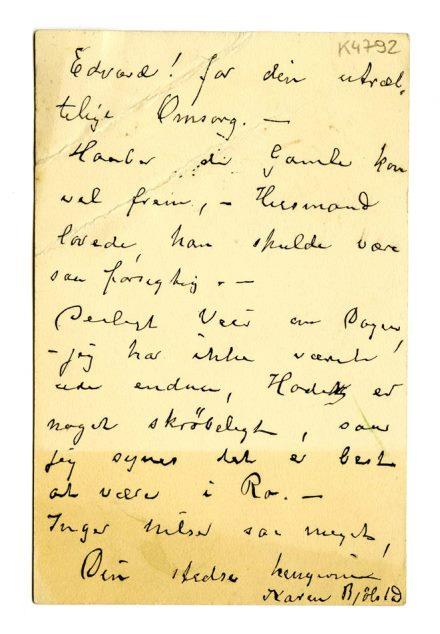 K4792
Edvard! for din utræt-
telige Omsorg. —
Haaber de Gamle kom
vel frem, —
lovede, han skulde være
saa forsigtig. —
Deiligt Veir om Dagen,
— jeg har ikke været
ude endnu, Hodet er
noget skrøbeligt, saa
jeg synes det er best
at være i Ro. —
Inger hilser saa meget,
Din stedse hengivne
Karen Bjølstad